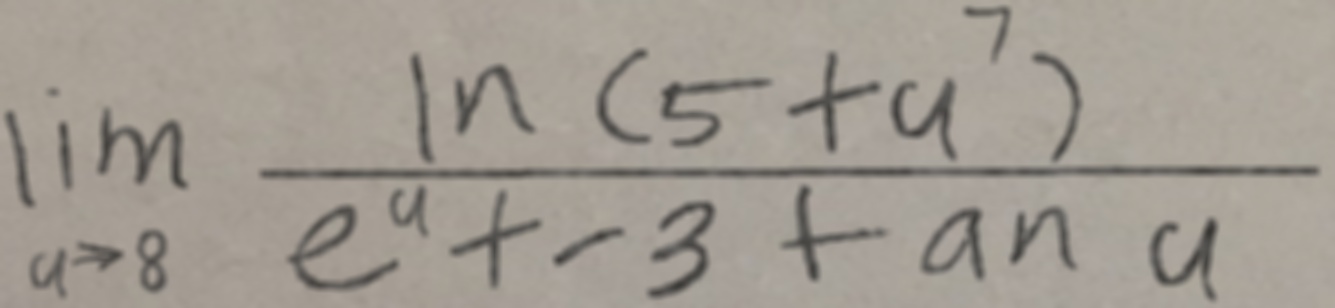 \lim_{u \to 8} \frac{\ln (5 + u^7)}{e^u + -3 + an u}